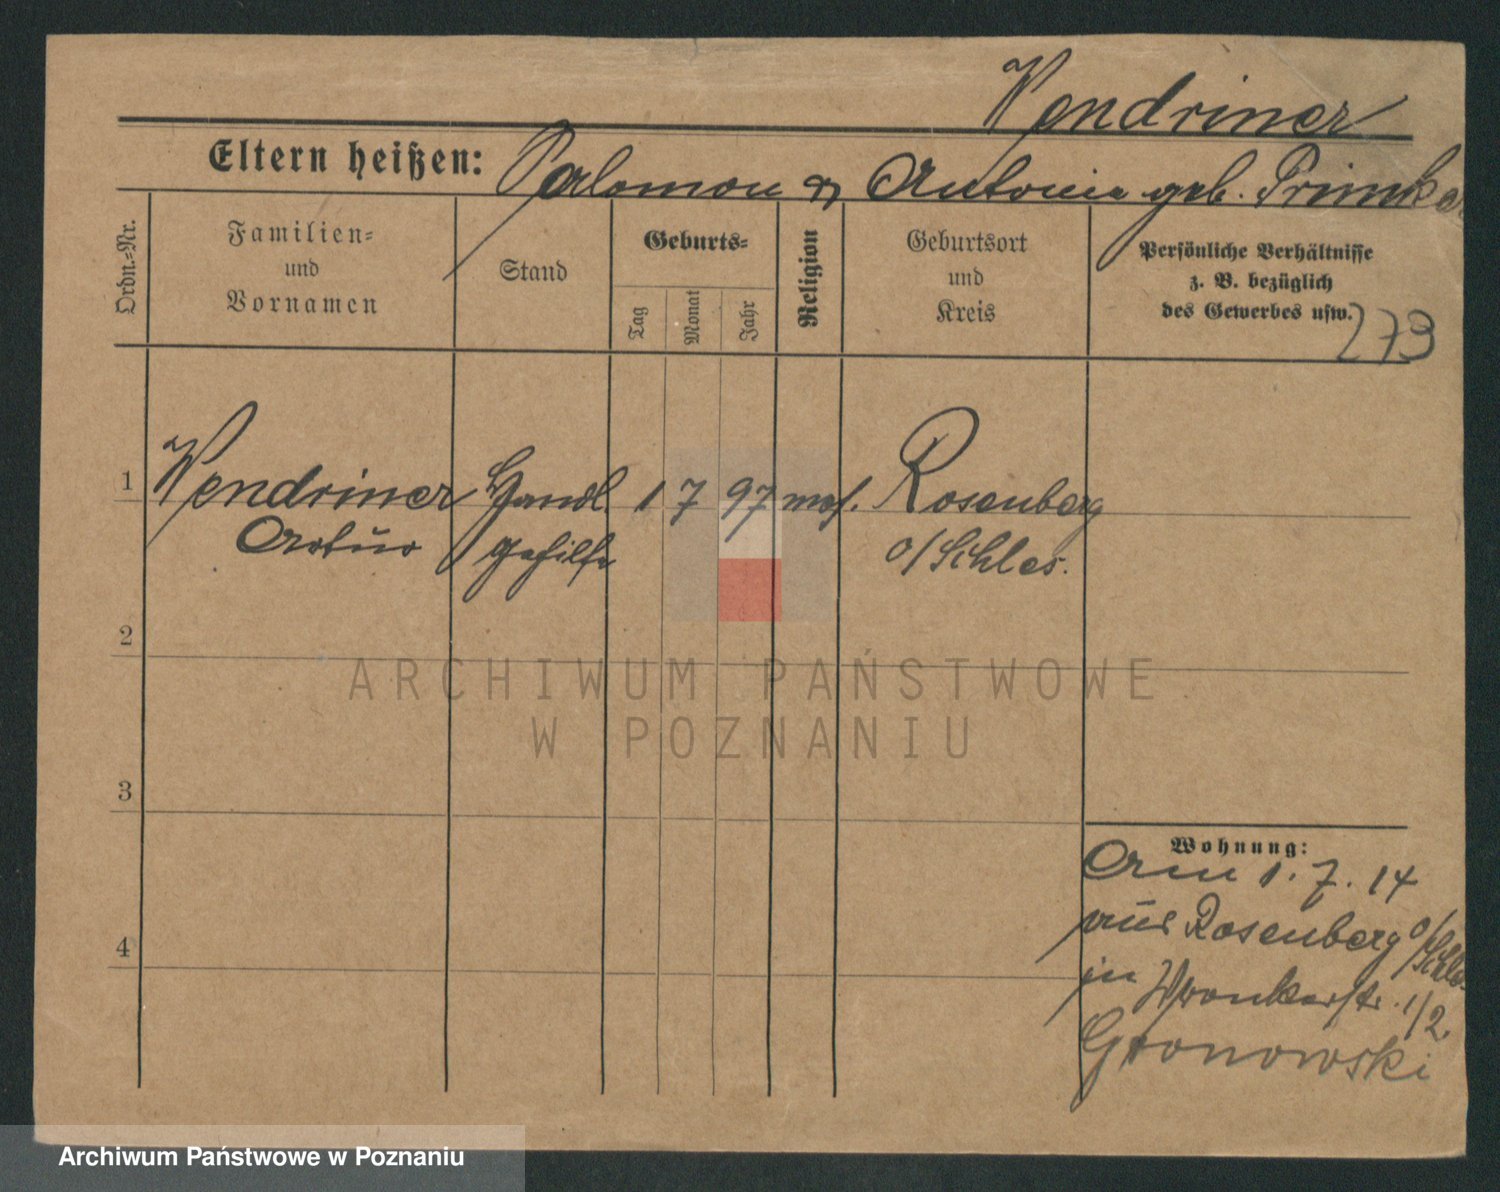 Wendriner
Eltern heißen: Salomon & Antonie geb. Primker
Ordn.-Nr.
Familien-
und
Vornamen
Stand
Geburts-
Tag
Monat
Jahr
Religion
Geburtsort
und
Kreis
Persönliche Verhältnisse
z. B. bezüglich
des Gewerbes usw.
273
1 Wendriner Handl. 1 7 97 mos. Rosenberg
Artur gehilfe o/Schles.
2
3
4
Wohnung:
Am 1.7.14
aus Rosenberg o/Schles.
in Wronkerstr. 1/2
Gronowski
ARCHIWUM PAŃSTWOWE
W POZNANIU
Archiwum Państwowe w Poznaniu